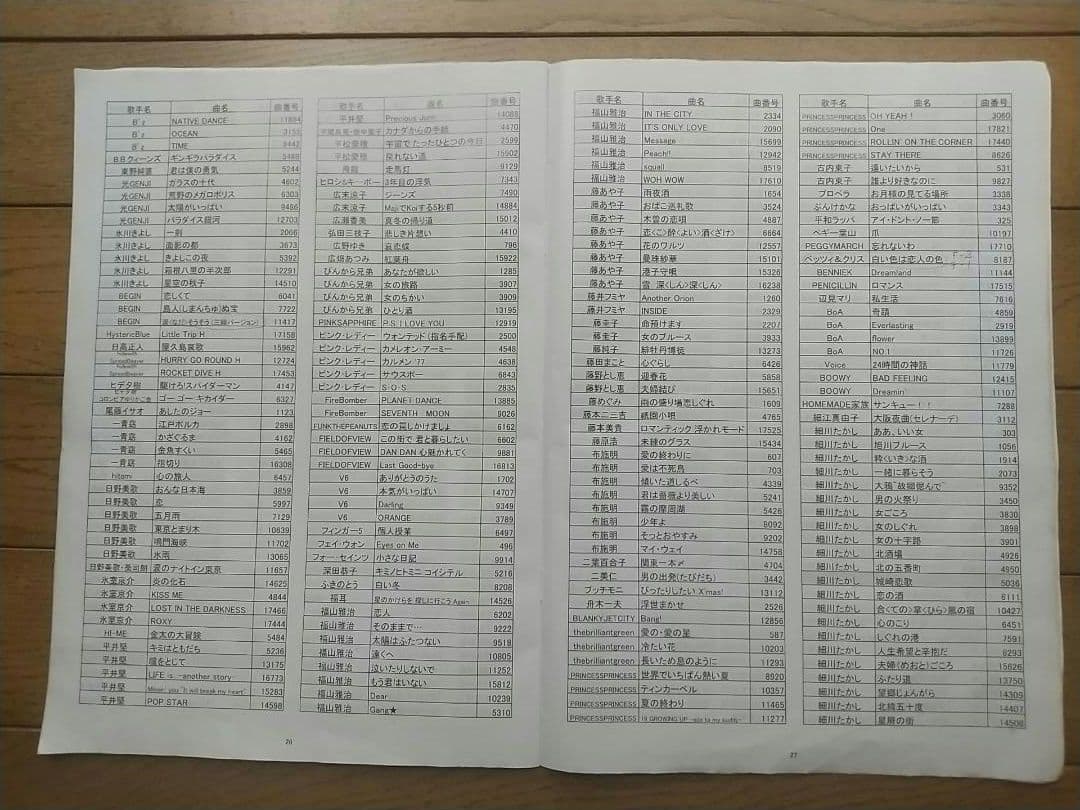 歌手名 曲名 曲番号
B'z NATIVE DANCE 11884
B'z OCEAN 3155
B'z TIME 8442
B.B.クィーンズ ギンギラパラダイス 5488
東野純直 君は僕の勇気 5244
光GENJI ガラスの十代 4602
光GENJI 荒野のメガロポリス 6303
光GENJI 太陽がいっぱい 9486
光GENJI パラダイス銀河 12703
氷川きよし 一剣 2066
氷川きよし 面影の都 3673
氷川きよし きよしこの夜 5392
氷川きよし 箱根八里の半次郎 12291
氷川きよし 星空の秋子 14510
BEGIN 恋しくて 6041
BEGIN 島人(しまんちゅ)ぬ宝 7722
BEGIN 涙(なだ)そうそう(三線バージョン) 11417
HystericBlue Little Trip H 7158
日高正人 屋久島哀歌 15962
HURRY GO ROUND H 12724
ROCKET DIVE H 17453
ヒデタ樹 駆けろ!スパイダーマン 4147
コロムビアゆりかご会 ゴー ゴー キカイダー 6327
尾藤イサオ あしたのジョー 1123
一青窈 江戸ポルカ 2898
一青窈 かざぐるま 4162
一青窈 金魚すくい 5465
一青窈 指切り 16308
hitomi 心の旅人 6457
日野美歌 おんな日本海 3859
日野美歌 恋 5997
日野美歌 五月雨 7129
日野美歌 東京とまり木 10639
日野美歌 鳴門海峡 11702
日野美歌 氷雨 13065
日野美歌・葵司朗 涙のナイトイン東京 11657
氷室京介 炎の化石 14625
氷室京介 KISS ME 4844
氷室京介 LOST IN THE DARKNESS 17466
氷室京介 ROXY 17444
HI-ME 金太の大冒険 5484
平井堅 キミはともだち 5236
平井堅 瞳をとじて 13175
平井堅 LIFE is...~another story~ 16773
平井堅 Missin' you~It will break my heart~ 15283
平井堅 POP STAR 14598
26
歌手名 曲名 曲番号
平井堅 Precious Junk 14088
カナダからの手紙 4470
平松愛理 宇宙で たったひとつの今日 2599
平松愛理 戻れない道 15902
飛龍 走馬灯 9129
ヒロシ&キーボー 3年目の浮気 7343
広末涼子 ジーンズ 7490
広末涼子 MajiでKoiする5秒前 14884
広瀬香美 真冬の帰り道 15012
弘田三枝子 悲しき片想い 4410
広野ゆき 哀恋蝶 796
広畑あつみ 紅葉舟 15922
びんから兄弟 あなたが欲しい 1285
びんから兄弟 女の旅路 3907
びんから兄弟 女のちかい 3909
びんから兄弟 ひとり酒 13195
PINKSAPPHIRE P.S. I LOVE YOU 12919
ピンク・レディー ウォンテッド(指名手配) 2500
ピンク・レディー カメレオン・アーミー 4548
ピンク・レディー カルメン'77 4638
ピンク・レディー サウスポー 6843
ピンク・レディー S・O・S 2835
FireBomber PLANET DANCE 13885
FireBomber SEVENTH MOON 9026
FUNKTHEPEANUTS 恋の罠しかけましょ 6162
FIELDOFVIEW この街で 君と暮らしたい 6602
FIELDOFVIEW DAN DAN 心魅かれてく 9881
FIELDOFVIEW Last Good-bye 16813
V6 ありがとうのうた 1702
V6 本気がいっぱい 14707
V6 Darling 9349
V6 ORANGE 3789
フィンガー5 個人授業 6497
フェイ・ウォン Eyes on Me 496
フォー・セインツ 小さな日記 9914
深田恭子 キミノヒトミニ コイシテル 5216
ふきのとう 白い冬 8208
福耳 星のかけらを 探しに行こう Again 14526
福山雅治 恋人 6202
福山雅治 そのままで… 9222
福山雅治 太陽はふたつない 9518
福山雅治 遠くへ 10805
福山雅治 泣いたりしないで 11252
福山雅治 もう君はいない 15812
福山雅治 Dear 10239
福山雅治 Gang★ 5310
歌手名 曲名 曲番号
福山雅治 IN THE CITY 2334
福山雅治 IT'S ONLY LOVE 2090
福山雅治 Message 15699
福山雅治 Peach!! 12942
福山雅治 squall 8519
福山雅治 WOH WOW 17610
藤あや子 雨夜酒 1654
藤あや子 おばこ巡礼歌 3524
藤あや子 木曽の恋唄 4887
藤あや子 恋<こ>酔<よい>酒<ざけ> 6664
藤あや子 花のワルツ 12557
藤あや子 曼珠紗華 15101
藤あや子 港子守唄 15326
藤あや子 雪 深<しん>深<しん> 16238
藤井フミヤ Another Orion 1260
藤井フミヤ INSIDE 2329
藤圭子 命預けます 2207
藤圭子 女のブルース 3933
藤純子 緋牡丹博徒 13273
藤田まこと 心ぐらし 6426
藤野とし恵 迎春花 5858
藤野とし恵 夫婦結び 15651
藤めぐみ 雨の盛り場恋しぐれ 1609
藤本二三吉 祇園小唄 4765
藤本美貴 ロマンティック 浮かれモード 17525
藤原浩 未練のグラス 15434
布施明 愛の終わりに 607
布施明 愛は不死鳥 703
布施明 傾いた道しるべ 4339
布施明 君は薔薇より美しい 5241
布施明 霧の摩周湖 5426
布施明 少年よ 8092
布施明 そっとおやすみ 9202
布施明 マイ・ウェイ 14758
二葉百合子 関東一本〆 4704
二美仁 男の出発(たびだち) 3442
プッチモニ ぴったりしたい X'mas! 13112
舟木一夫 浮世まかせ 2526
BLANKYJETCITY Bang! 12856
thebrilliantgreen 愛の・愛の星 587
thebrilliantgreen 冷たい花 10203
thebrilliantgreen 長いため息のように 11293
PRINCESSPRINCESS 世界でいちばん熱い夏 8920
PRINCESSPRINCESS ティンカーベル 10357
PRINCESSPRINCESS 夏の終わり 11465
PRINCESSPRINCESS 19 GROWING UP -ode to my buddy- 11277
27
歌手名 曲名 曲番号
PRINCESSPRINCESS OH YEAH! 3060
PRINCESSPRINCESS One 17821
PRINCESSPRINCESS ROLLIN' ON THE CORNER 17440
PRINCESSPRINCESS STAY THERE 8626
古内東子 遠いたいから 531
古内東子 誰より好きなのに 9827
プロペラ お月様の見てる場所 3338
ぶんけかな おっぱいがいっぱい 3343
平和ラッパ アイ・ドント・ノー節 325
ペギー葉山 爪 10197
PEGGYMARCH 忘れないわ 17710
ベッツィ&クリス 白い色は恋人の色 8187
BENNIEK Dreamland 11144
PENICILLIN ロマンス 17515
辺見マリ 私生活 7616
BoA 奇蹟 4859
BoA Everlasting 2919
BoA flower 13899
BoA NO.1 11726
Voice 24時間の神話 11779
BOOWY BAD FEELING 12415
BOOWY Dreamin' 11107
HOMEMADE家族 サンキュー!! 7288
細江真由子 大阪夜曲(セレナーデ) 3112
細川たかし ああ、いい女 303
細川たかし 旭川ブルース 1056
細川たかし 粋<いき>な酒 1914
細川たかし 一緒に暮らそう 2073
細川たかし 大鴉"故郷偲んで" 9352
細川たかし 男の火祭り 3450
細川たかし 女ごころ 3830
細川たかし 女のしぐれ 3898
細川たかし 女の十字路 3901
細川たかし 北酒場 4926
細川たかし 北の五番町 4950
細川たかし 城崎恋歌 5036
細川たかし 恋の酒 6111
細川たかし 合<ての>掌<ひら>風の宿 10427
細川たかし 心のこり 6451
細川たかし しぐれの港 7591
細川たかし 人生希望と辛抱だ 8293
細川たかし 夫婦(めおと)ごころ 15626
細川たかし ふたり道 13750
細川たかし 望郷じょんがら 14309
細川たかし 北緯五十度 14407
細川たかし 星屑の街 14508